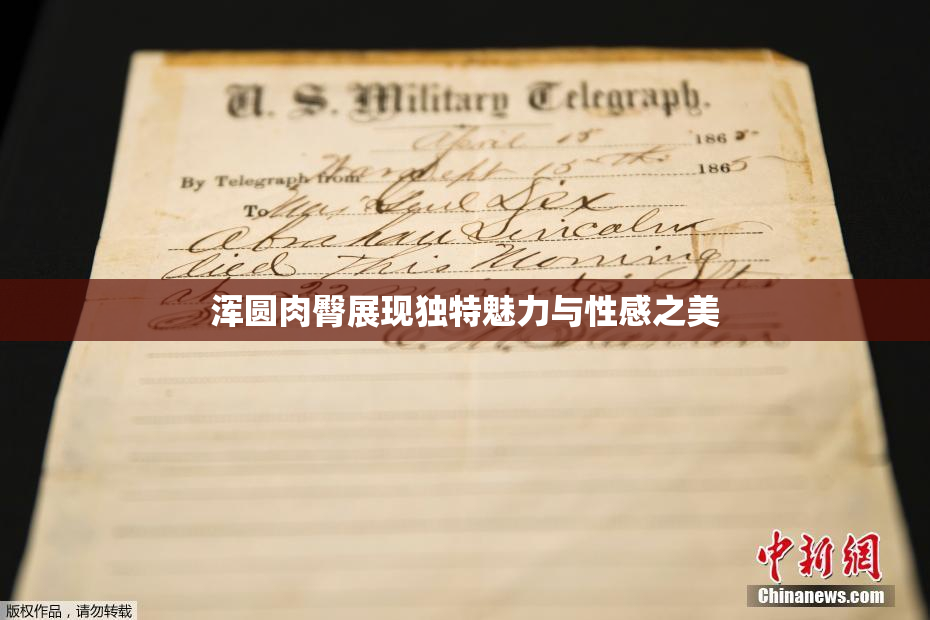 U. S. Military Telegraph.
April 15 1865
By Telegraph from War Dept 15th 1865
To Maj Genl Dix
Abraham Lincoln
died This Morning
at 22 minutes after
浑圆肉臀展现独特魅力与性感之美
中新网
Chinanews.com
版权作品，请勿转载